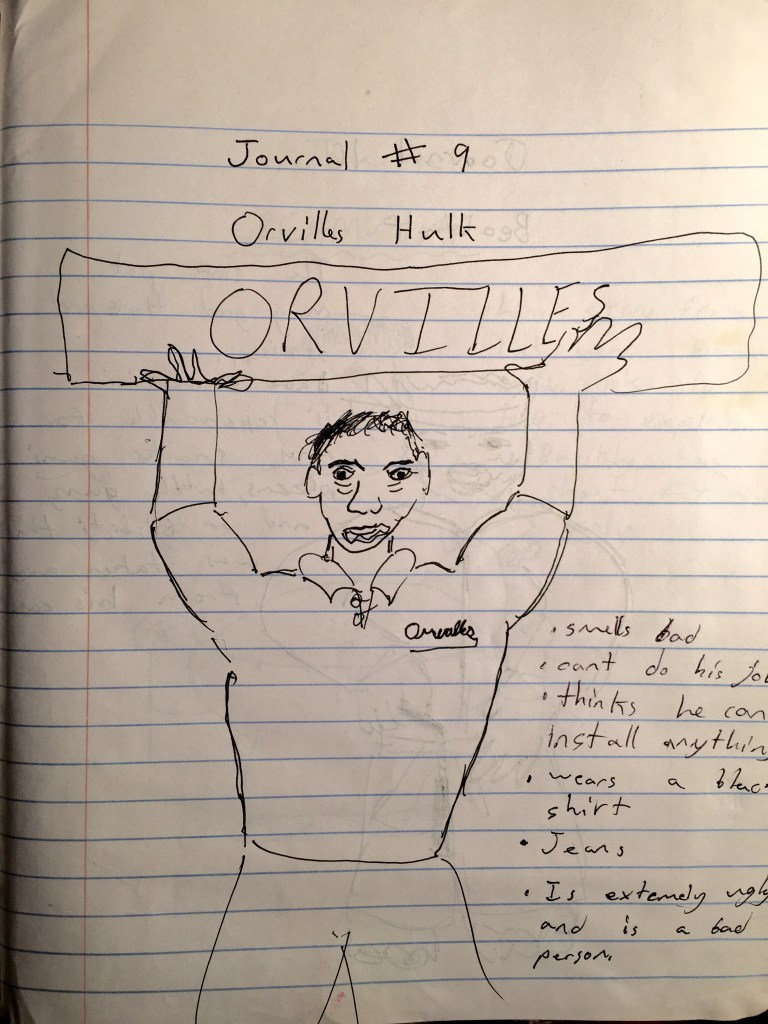 Journal # 9
Orvilles Hulk
ORVILLES
• smells bad
• cant do his jo
• thinks he can
install anythin
• wears a blac
shirt
• Jeans
• Is extemely ugly
and is a bad
person.